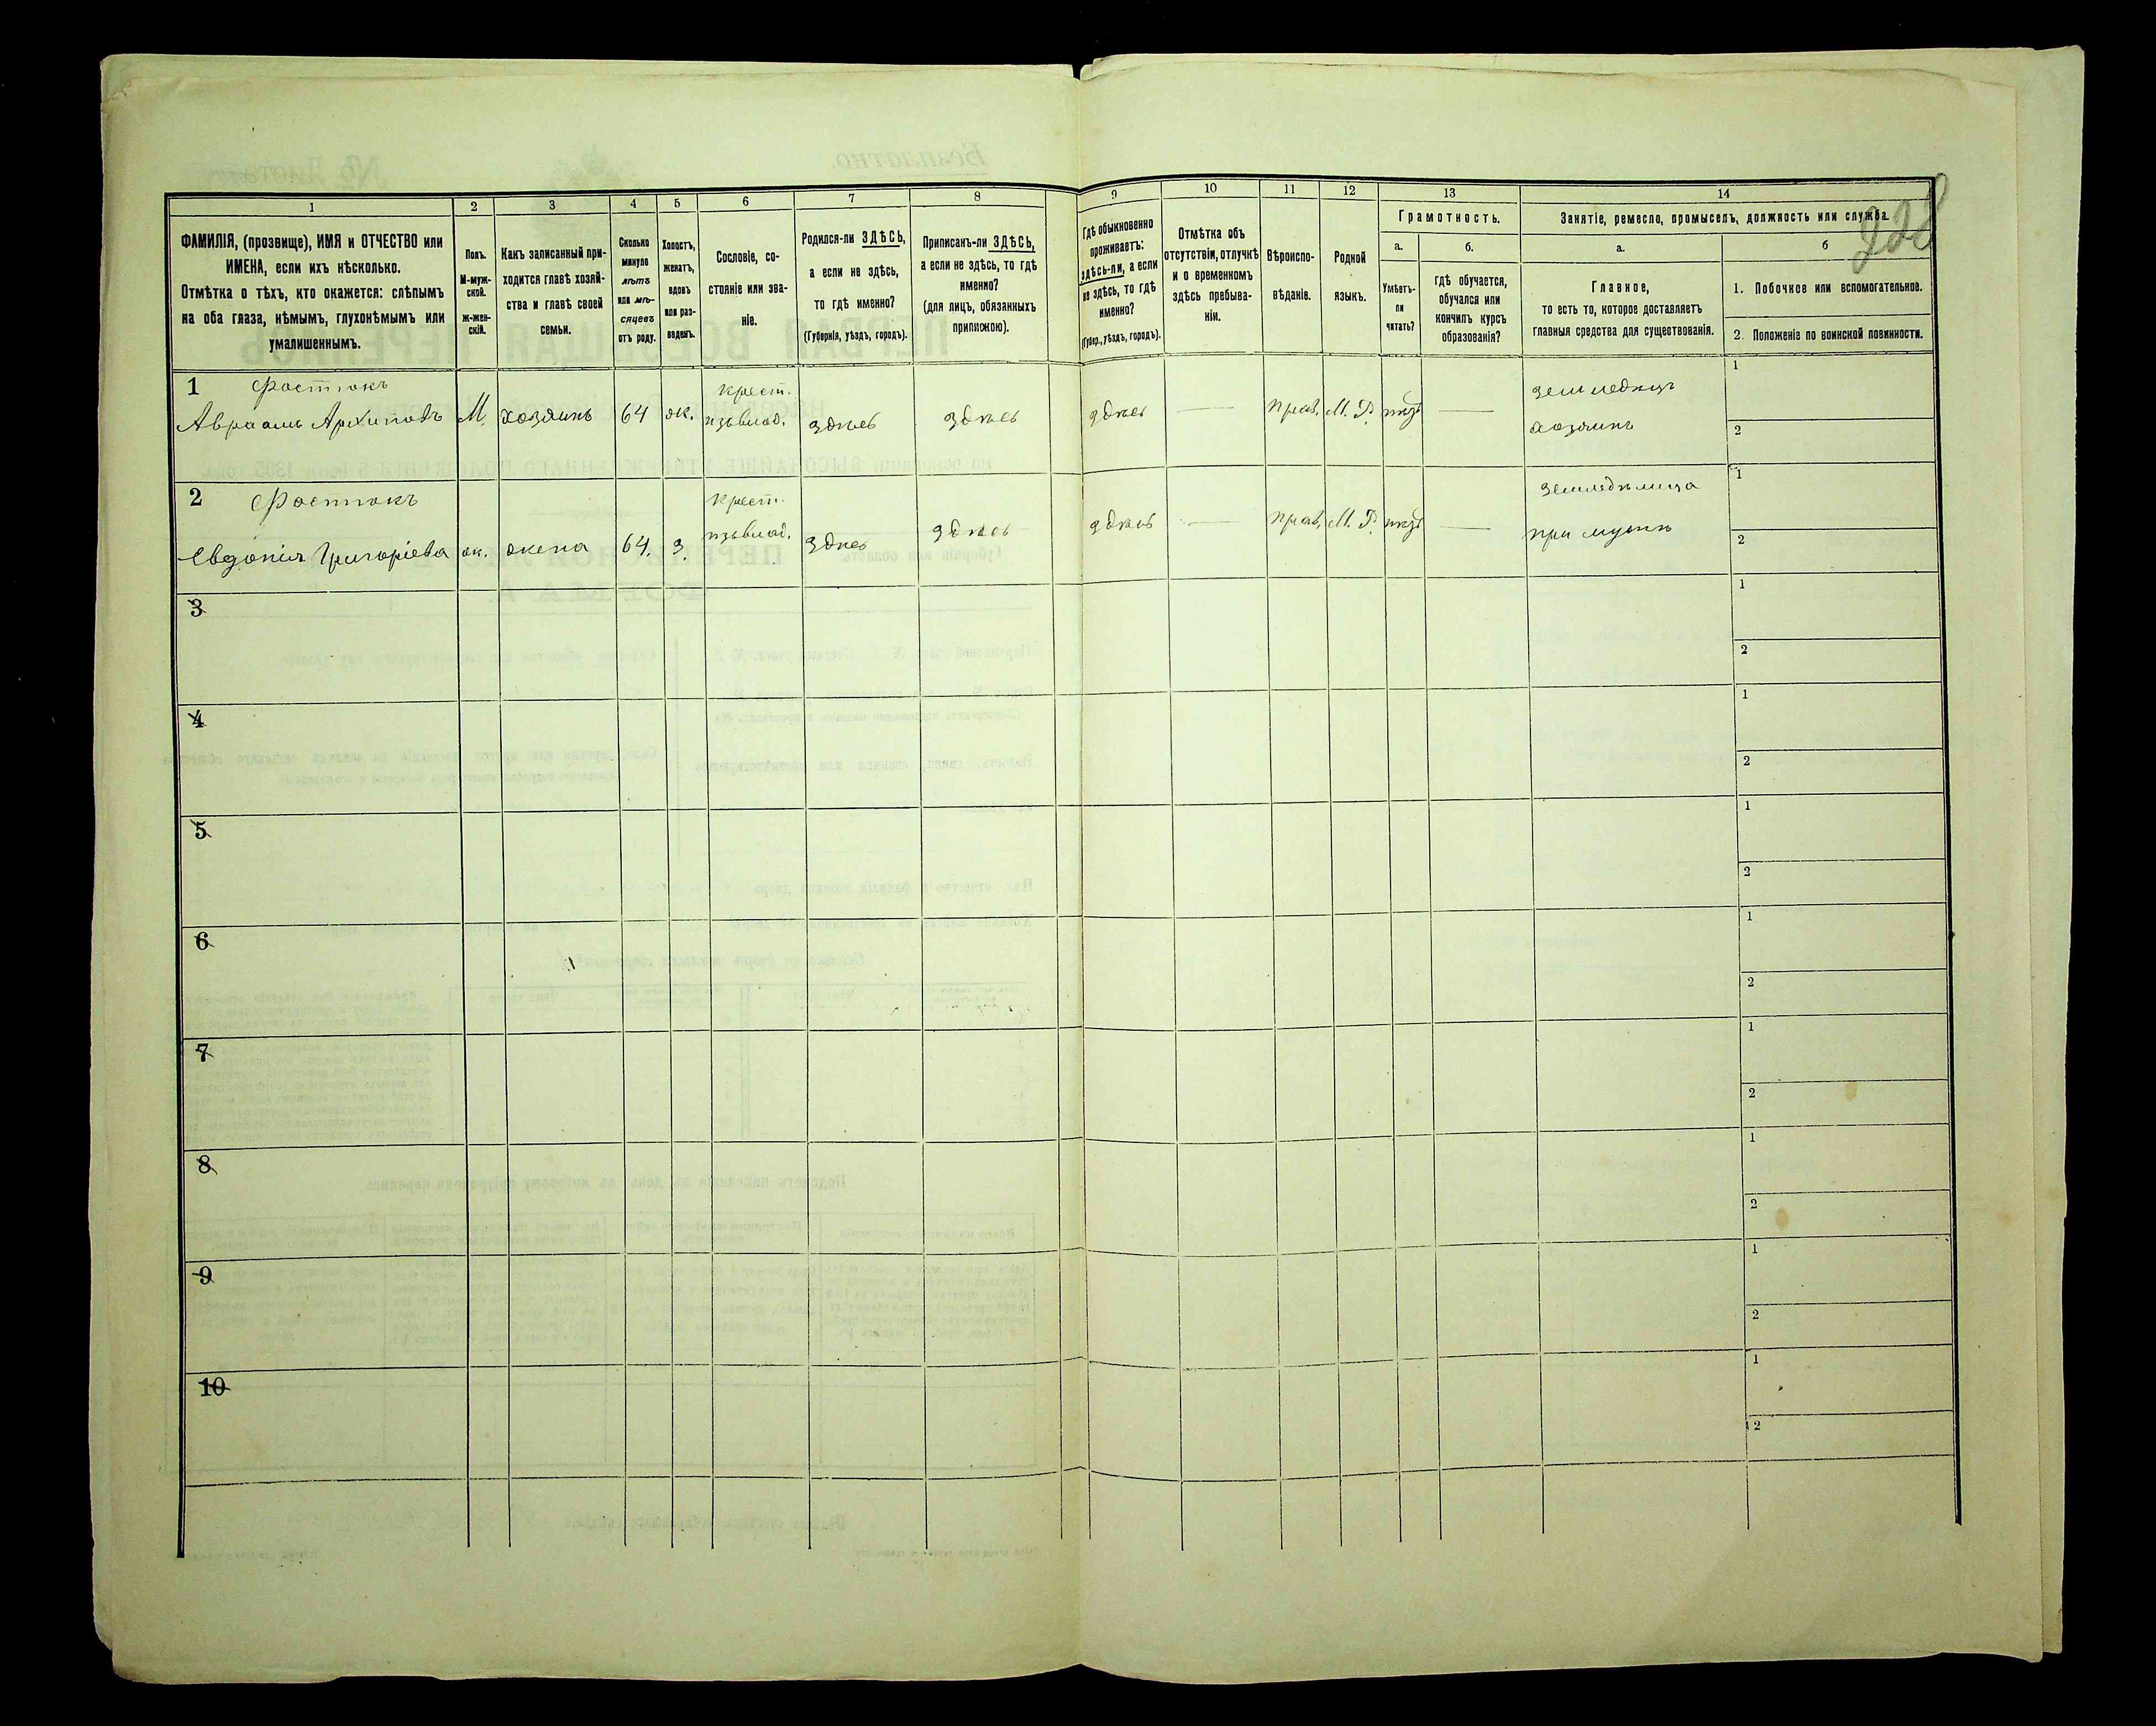 228
1 2 3 4 5 6 7 8 9 10 11 12 13 14
ФАМИЛІЯ, (прозвище), ИМЯ и ОТЧЕСТВО или
ИМЕНА, если ихъ нѣсколько.
Отмѣтка о тѣхъ, кто окажется: слѣпымъ
на оба глаза, нѣмымъ, глухонѣмымъ или
умалишеннымъ.
Полъ.
М-муж-
ской.
ж-жен-
скій.
Какъ записанный при-
ходится главѣ хозяй-
ства и главѣ своей
семьи.
Сколько
минуло
лѣтъ
или мѣ-
сяцевъ
отъ роду.
Холостъ,
женатъ,
вдовъ
или раз-
веденъ.
Сословіе, со-
стояніе или зва-
ніе.
Родился-ли ЗДѢСЬ,
а если не здѣсь,
то гдѣ именно?
(Губернія, уѣздъ, городъ).
Приписанъ-ли ЗДѢСЬ,
а если не здѣсь, то гдѣ
именно?
(для лицъ, обязанныхъ
припискою).
Гдѣ обыкновенно
проживаетъ:
здѣсь-ли, а если
не здѣсь, то гдѣ
именно?
(Губер., уѣздъ, городъ).
Отмѣтка объ
отсутствіи, отлучкѣ
и о временномъ
здѣсь пребыва-
ніи.
Вѣроиспо-
вѣданіе.
Родной
языкъ.
Грамотность.
а.
Умѣетъ-
ли
читать?
б.
гдѣ обучается,
обучался или
кончилъ курсъ
образованія?
Занятіе, ремесло, промыселъ, должность или служба.
а.
Главное,
то есть то, которое доставляетъ
главныя средства для существованія.
б
1. Побочное или вспомогательное.
2. Положеніе по воинской повинности.
1 Фостокъ крест. земледѣлецъ 1
Авраамъ Архиповъ М. хозяинъ 64 ж. здѣсь здѣсь здѣсь — прав. М. Р. — хозяинъ 2
2 Фостокъ крест. 1
Евдокія Григоріева ж. жена 64. З. здѣсь здѣсь здѣсь — прав. М. Р. — при мужѣ 2
3 1
2
4 1
2
5 1
2
6 1
2
7 1
2
8 1
2
9 1
2
10 1
2